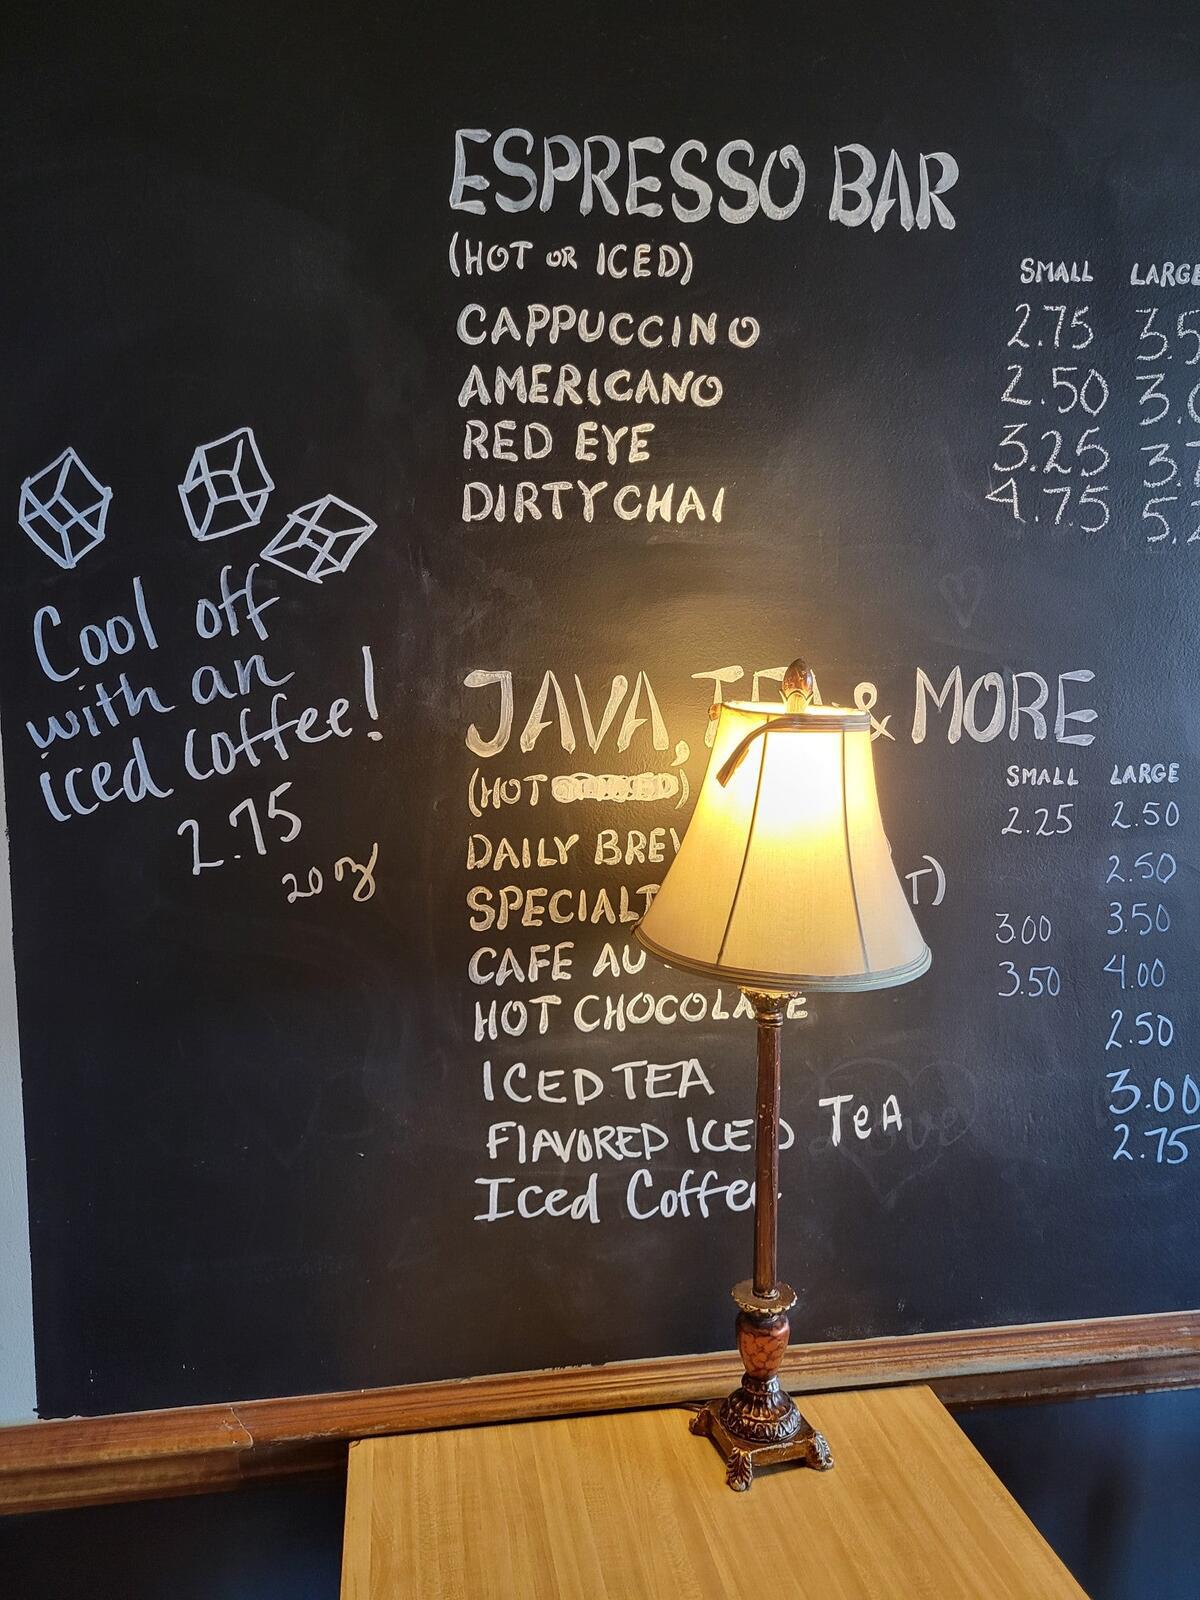 ESPRESSO BAR
(HOT OR ICED)
SMALL LARGE
CAPPUCCINO 2.75
AMERICANO 2.50
RED EYE 3.25
DIRTY CHAI 4.75
Cool off
with an
iced coffee!
2.75
20 oz
JAVA, TEA & MORE
(HOT
SMALL LARGE
2.25 2.50
DAILY BREW
2.50
SPECIALT T)
3.00 3.50
CAFE AU
3.50 4.00
HOT CHOCOLATE
2.50
ICED TEA
3.00
FLAVORED ICED TeA
2.75
Iced Coffee
love